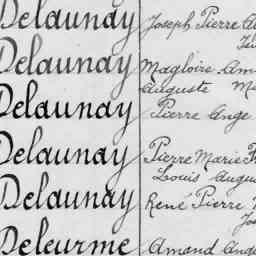 Delaunay Joseph Pierre
Delaunay Magloire
Auguste
Delaunay Pierre Ange
Delaunay Pierre Marie
Louis
Delaunay René Pierre
Deleurme Amand